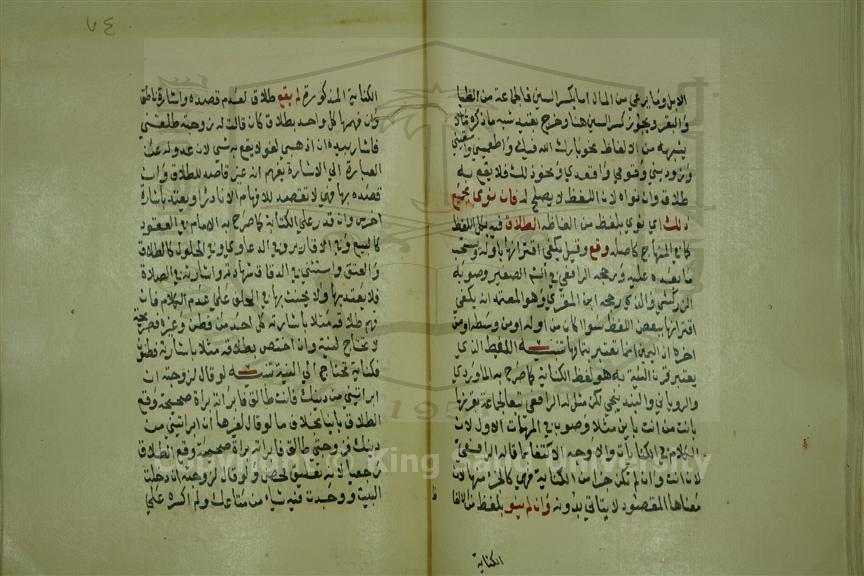 الابل وما يرعى من المال اما بكسر السين فالجماعة من الظبا
والبقر ويجوز كسر السين هنا وخرج بقيد شبه ما ذكره ما لا
يشبهه من الالفاظ نحو بارك الله فيك واطعمني واسقيني
وزوديني وقومي واقعدي ونحو ذلك فلا يقع به
طلاق وان نواه لان اللفظ لا يصلح له فان نوى بجميع
ذلك اي نوى بلفظ من الفاظه الطلاق فيه بكل اللفظ
كما في المنهاج كاصله وقع وقيل يكفي اقترانها باوله وينسحب
ما بعده عليه ورجحه الرافعي في الشرح الصغير وصوبه
الزركشي والذي رجحه ابن المقري وهو المعتمد انه يكفي
اقترانها ببعض اللفظ سوا كان من اوله او من وسطه او من
اخره اذ اليمين انما تعتبر بتمامها تنبيه اللفظ الذي
يعتبر قرن النية به هو لفظ الكناية كما صرح به الماوردي
والروياني والبندنيجي لكن مثل له الرافعي تبعا لجماعة بقرنها
بانت من انت باين مثلا وصوب في المهمات الاول لان
الكلام في الكنايات والاوجه الاكتفا بما قاله الرافعي
لان انت وان لم تكن جزا من الكناية فهي كالجز منها لان
معناها المقصود لا يتاتى بدونه وان لم ينو بلفظ من الفاظ
الكناية
٧٤
الكناية المذكورة لم يقع طلاق لعدم قصده واشارة ناطق
وان فهمها كل واحد بطلاق كان قالت له زوجته طلقني
فاشار بيده ان اذهبي لغو لا يقع به شي لان عدوله عن
العبارة الى الاشارة يفهم انه غير قاصد للطلاق وان
قصده بها فهي لا تقصد للافهام الا نادرا ويعتد باشارة
اخرس وان قدر على الكتابة كما صرح به الامام في العقود
كالبيع وفي الاقارير وفي الدعاوي وفي الحلول كالطلاق
والعتق واستثنى في الدقائق شهادته واشارته في الصلاة
فلا يعتد بها ولا يحنث بها في الحلف على عدم الكلام فان
فهم طلاقه مثلا باشارته كل احد من فطن وغيره فصريحة
لا تحتاج لنية وان اختص بطلاقه مثلا باشارته فطن
فكناية تحتاج الى النية تنبيه لو قال لزوجته ان
ابراتيني من دينك فانت طالق فابراته براة صحيحة وقع
الطلاق باينا بخلاف ما لو قال لغيرها ان ابراتيني من
دينك فزوجتي طالق فابراته براة صحيحة وقع الطلاق
رجعيا لانه تعليق محض ولو قال لزوجته ان دخلت
البيت ووجدت فيه شيا من متاعك ولم اكسره على
Copyright © King Saud University
195